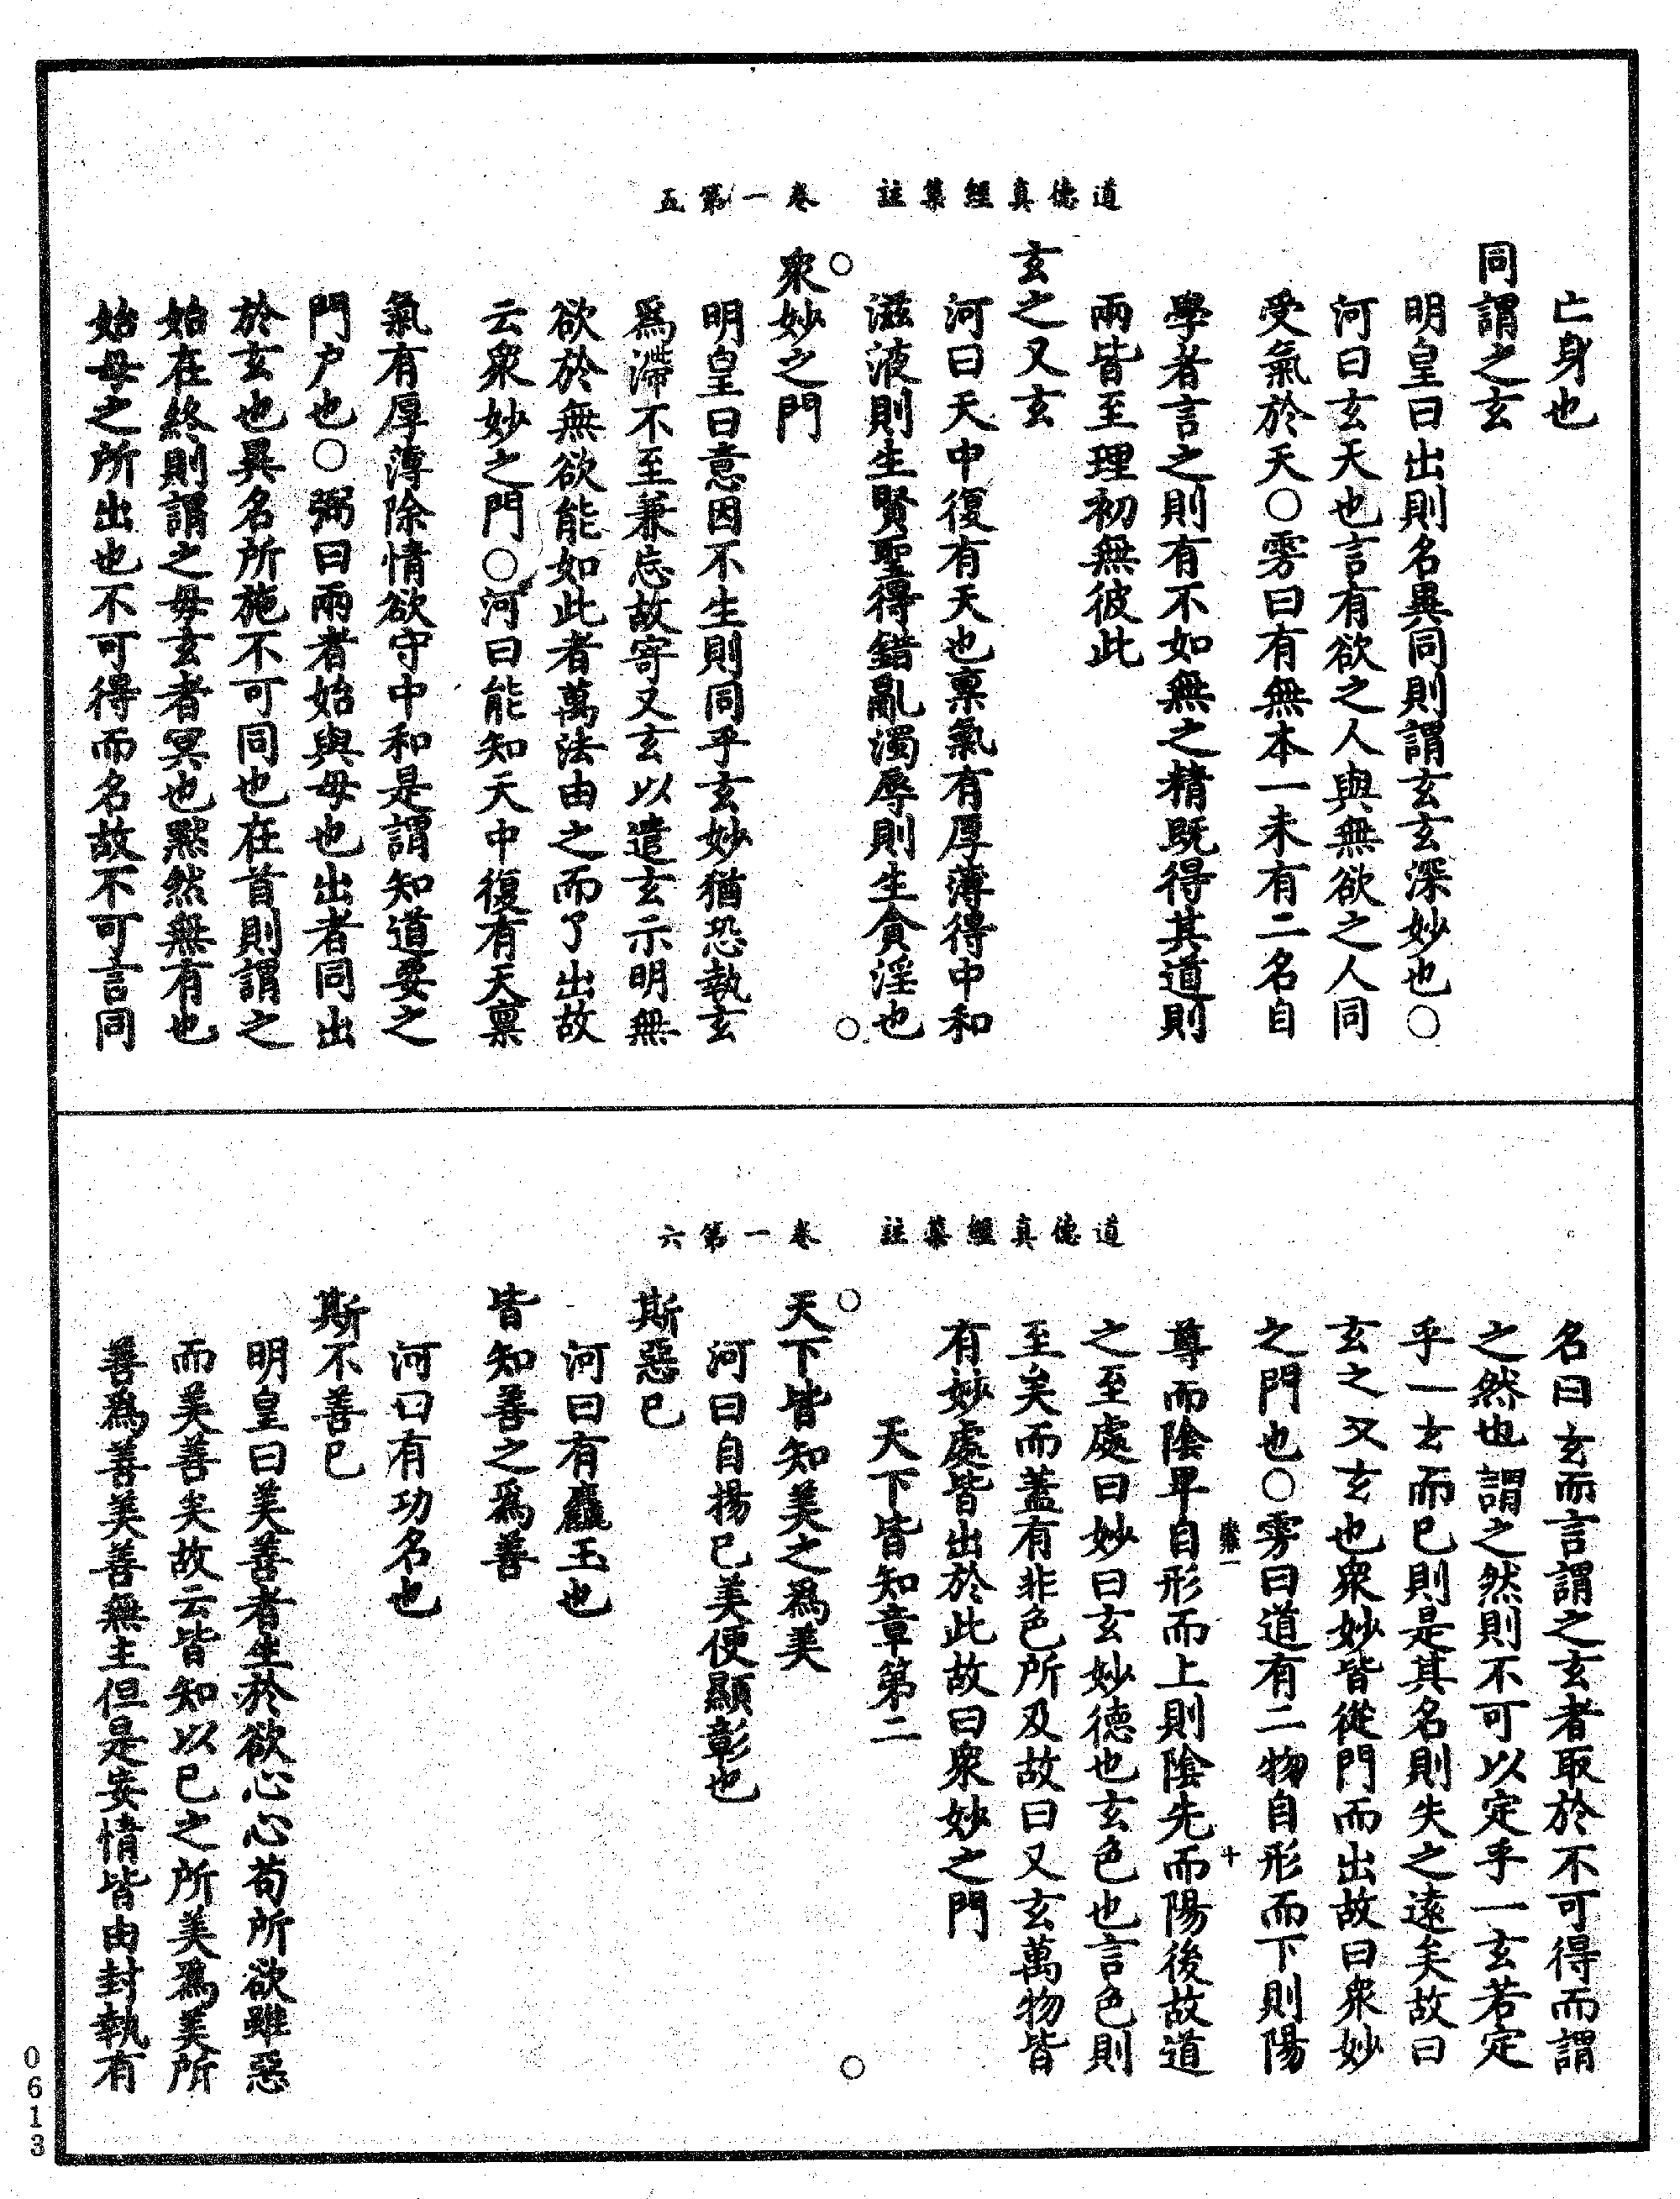 道德真經集註　卷一第五
亡身也
同謂之玄
明皇曰出則名異同則謂玄玄深妙也○
河曰玄天也言有欲之人與無欲之人同
受氣於天○雱曰有無本一未有二名自
學者言之則有不如無之精既得其道則
兩皆至理初無彼此
玄之又玄
河曰天中復有天也稟氣有厚薄得中和
滋液則生賢聖得錯亂濁辱則生貪淫也
○衆妙之門○
明皇曰意因不生則同乎玄妙猶恐執玄
爲滯不至兼忘故寄又玄以遣玄示明無
欲於無欲能如此者萬法由之而了出故
云衆妙之門○河曰能知天中復有天稟
氣有厚薄除情欲守中和是謂知道要之
門户也○弼曰兩者始與母也出者同出
於玄也異名所施不可同也在首則謂之
始在終則謂之母玄者冥也黙然無有也
始母之所出也不可得而名故不可言同
道德真經集註　卷一第六
名曰玄而言謂之玄者取於不可得而謂
之然也謂之然則不可以定乎一玄若定
乎一玄而已則是其名則失之遠矣故曰
玄之又玄也衆妙皆從門而出故曰衆妙
之門也○雱曰道有二物自形而下則陽
尊而陰卑自形而上則陰先而陽後故道
之至處曰妙曰玄妙德也玄色也言色則
至矣而蓋有非色所及故曰又玄萬物皆
有妙處皆出於此故曰衆妙之門
天下皆知章第二
○天下皆知美之爲美○
河曰自揚已美便顯彰也
斯惡已
河曰有危王也
皆知善之爲善
河曰有功名也
斯不善已
明皇曰美善者生於欲心心苟所欲雖惡
而美善矣故云皆知以已之所美爲美所
善爲善美善無主但是妄情皆由封執有
0613